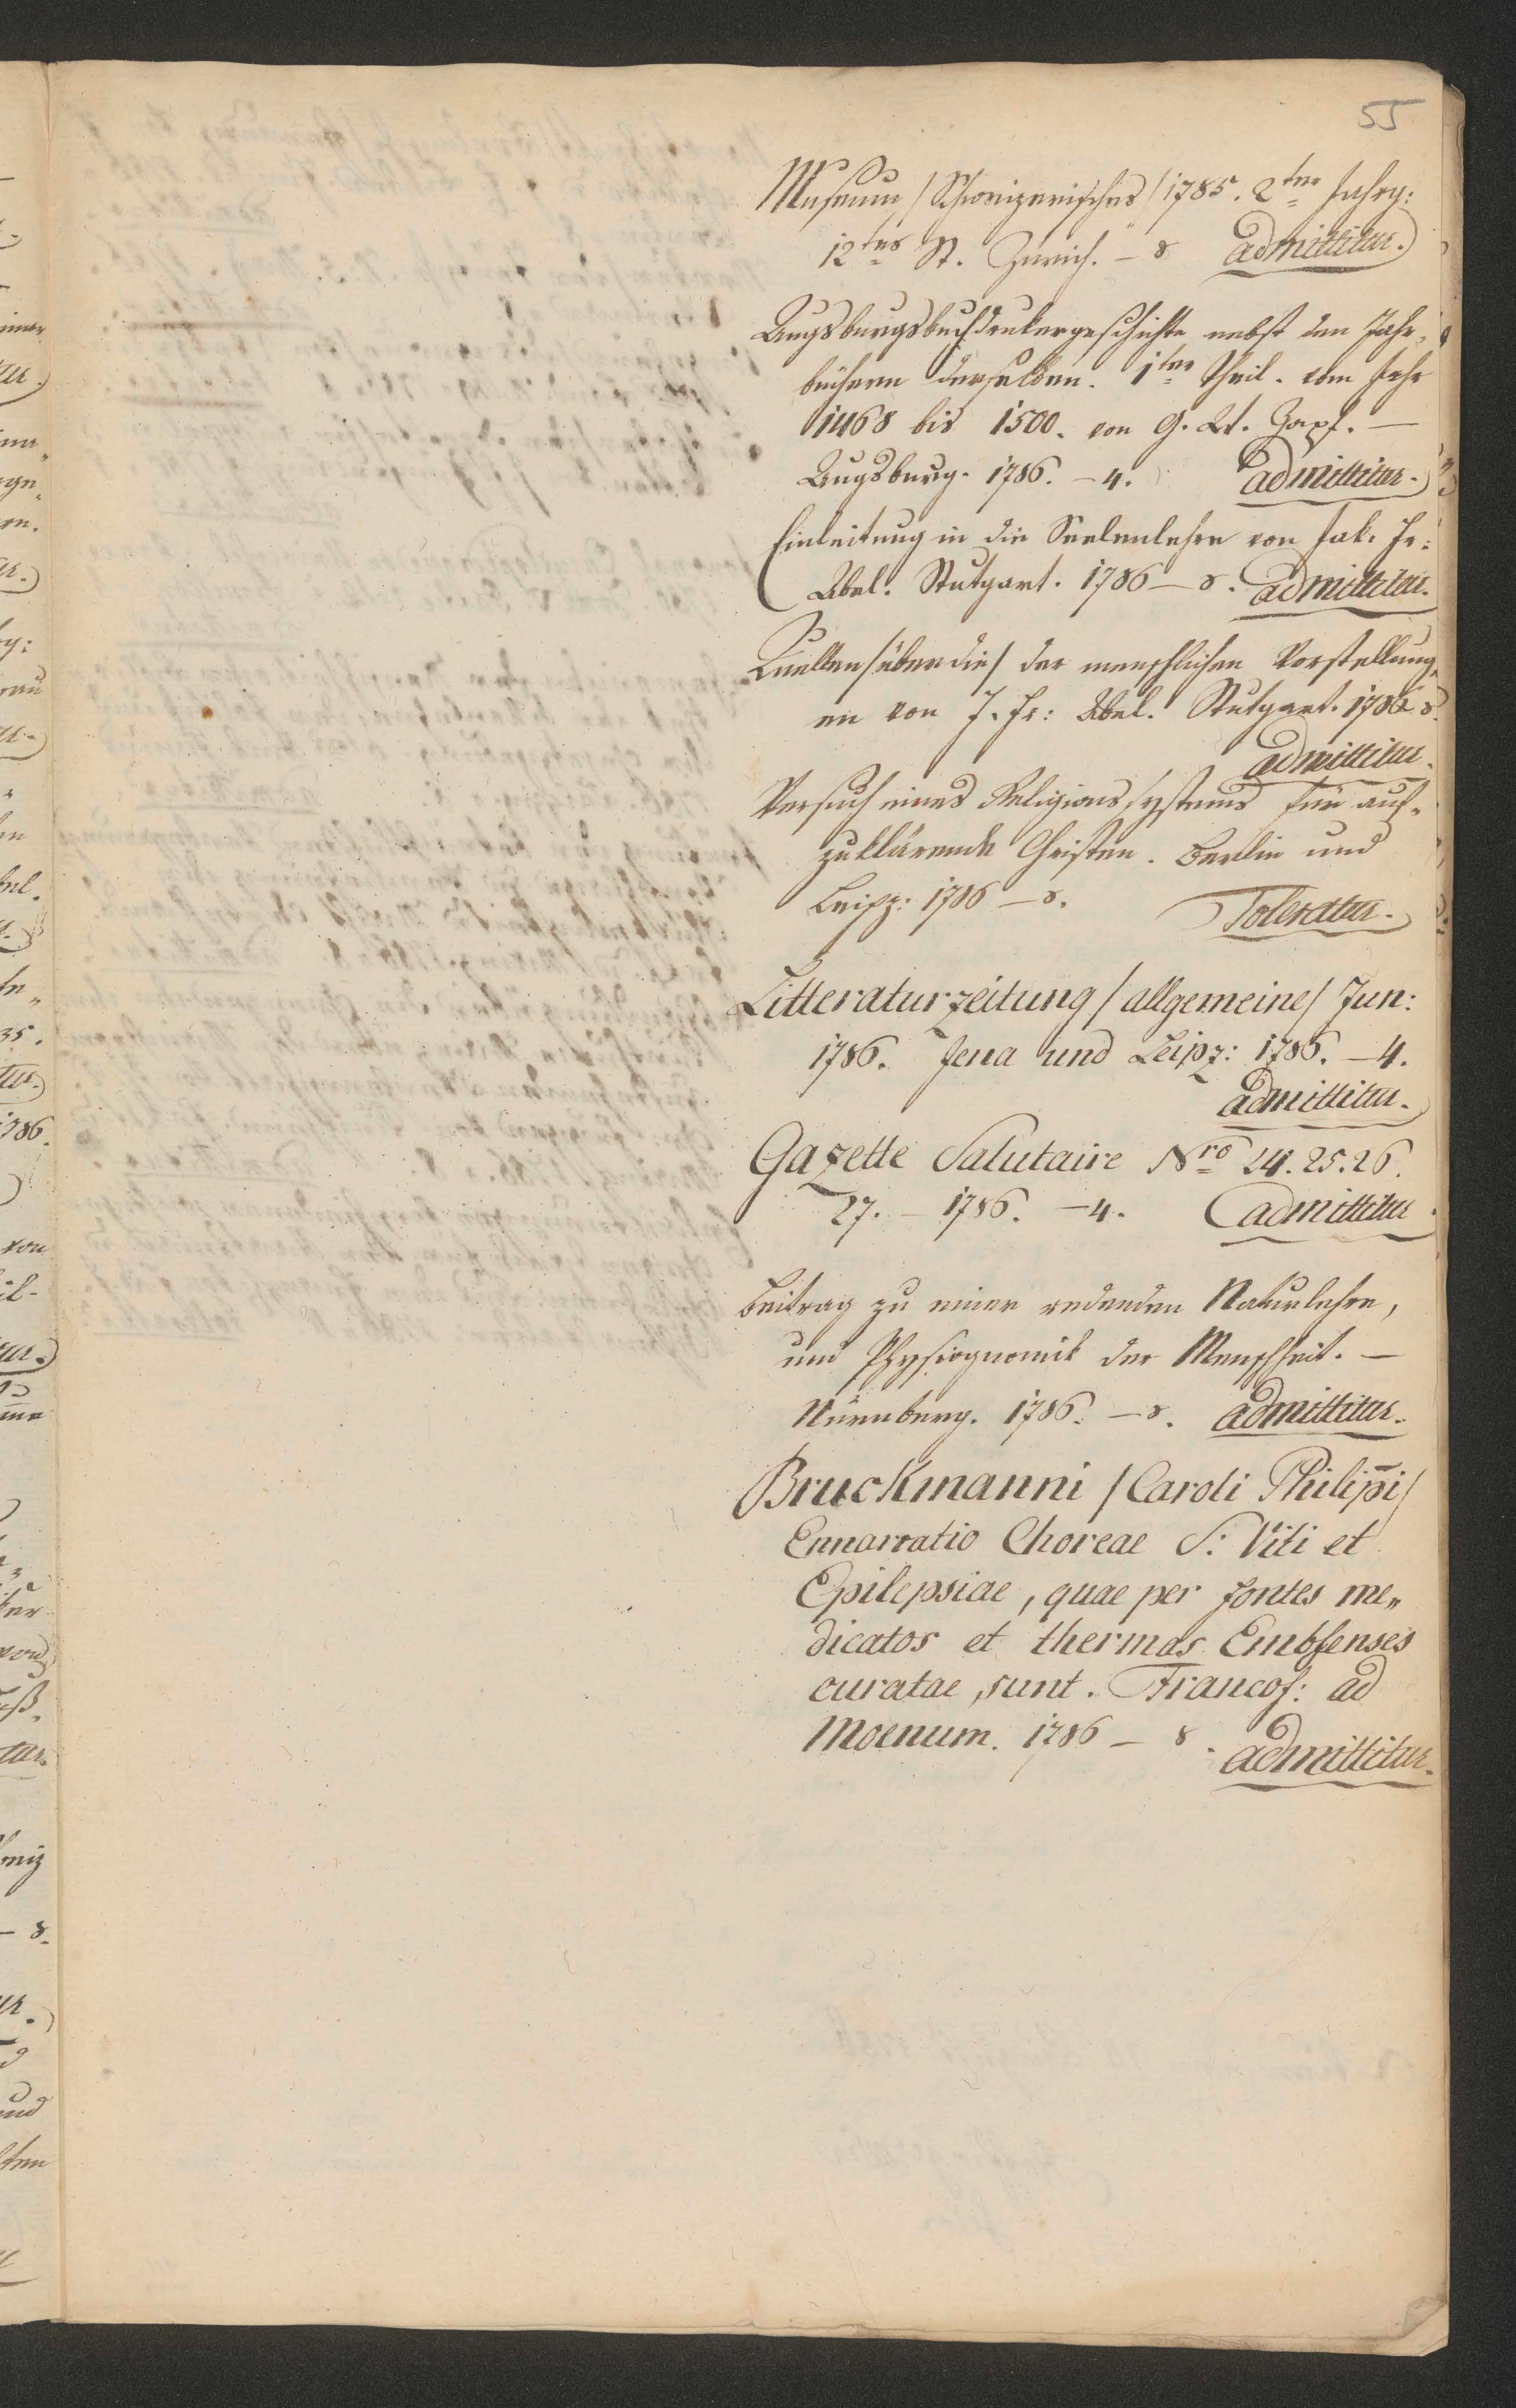 55
Museum /Schweizerisches/ 1785. 2ter Jahrg:
12tes St. Zürich. – 8 admittitur.
Augsburgsbuchdrukergeschichte nebst den Jahr„
büchern derselben. 1ter Theil. vom Jahr
1468 bis 1500. von G. W. Zapf. —
Augsburg. 1786. – 4. admittitur.
Einleitung in die Seelenlehre von Jak. Fr:
Abel. Stutgart. 1786 – 8. admittitur.
Quellen /über die/ der menschlichen Vorstellung„
en von J. Fr: Abel. Stutgart. 1786 8.
admittitur.
Versuch eines Religionssystems für auf„
zuklärende Christen. Berlin und
Leipz: 1786 – 8. Toleratur.
Litteraturzeitung / allgemeine / Jun:
1786. Jena und Leipz: 1786. – 4.
admittitur.
Gazette Salutaire Nro 24. 25. 26.
27. – 1786. – 4. admittitur.
Beitrag zu einer redenden Naturlehre,
und Physiognomik der Menschheit. —
Nürnberg. 1786. – 8. admittitur.
Bruckmanni / Caroli Philipi /
Ennarratio Choreae S: Viti et
Epilepsiae, quae per fontes me„
dicatos et thermas Embsenses
curatae sunt. Francof: ad
Moenum. 1786 – 8. admittitur.